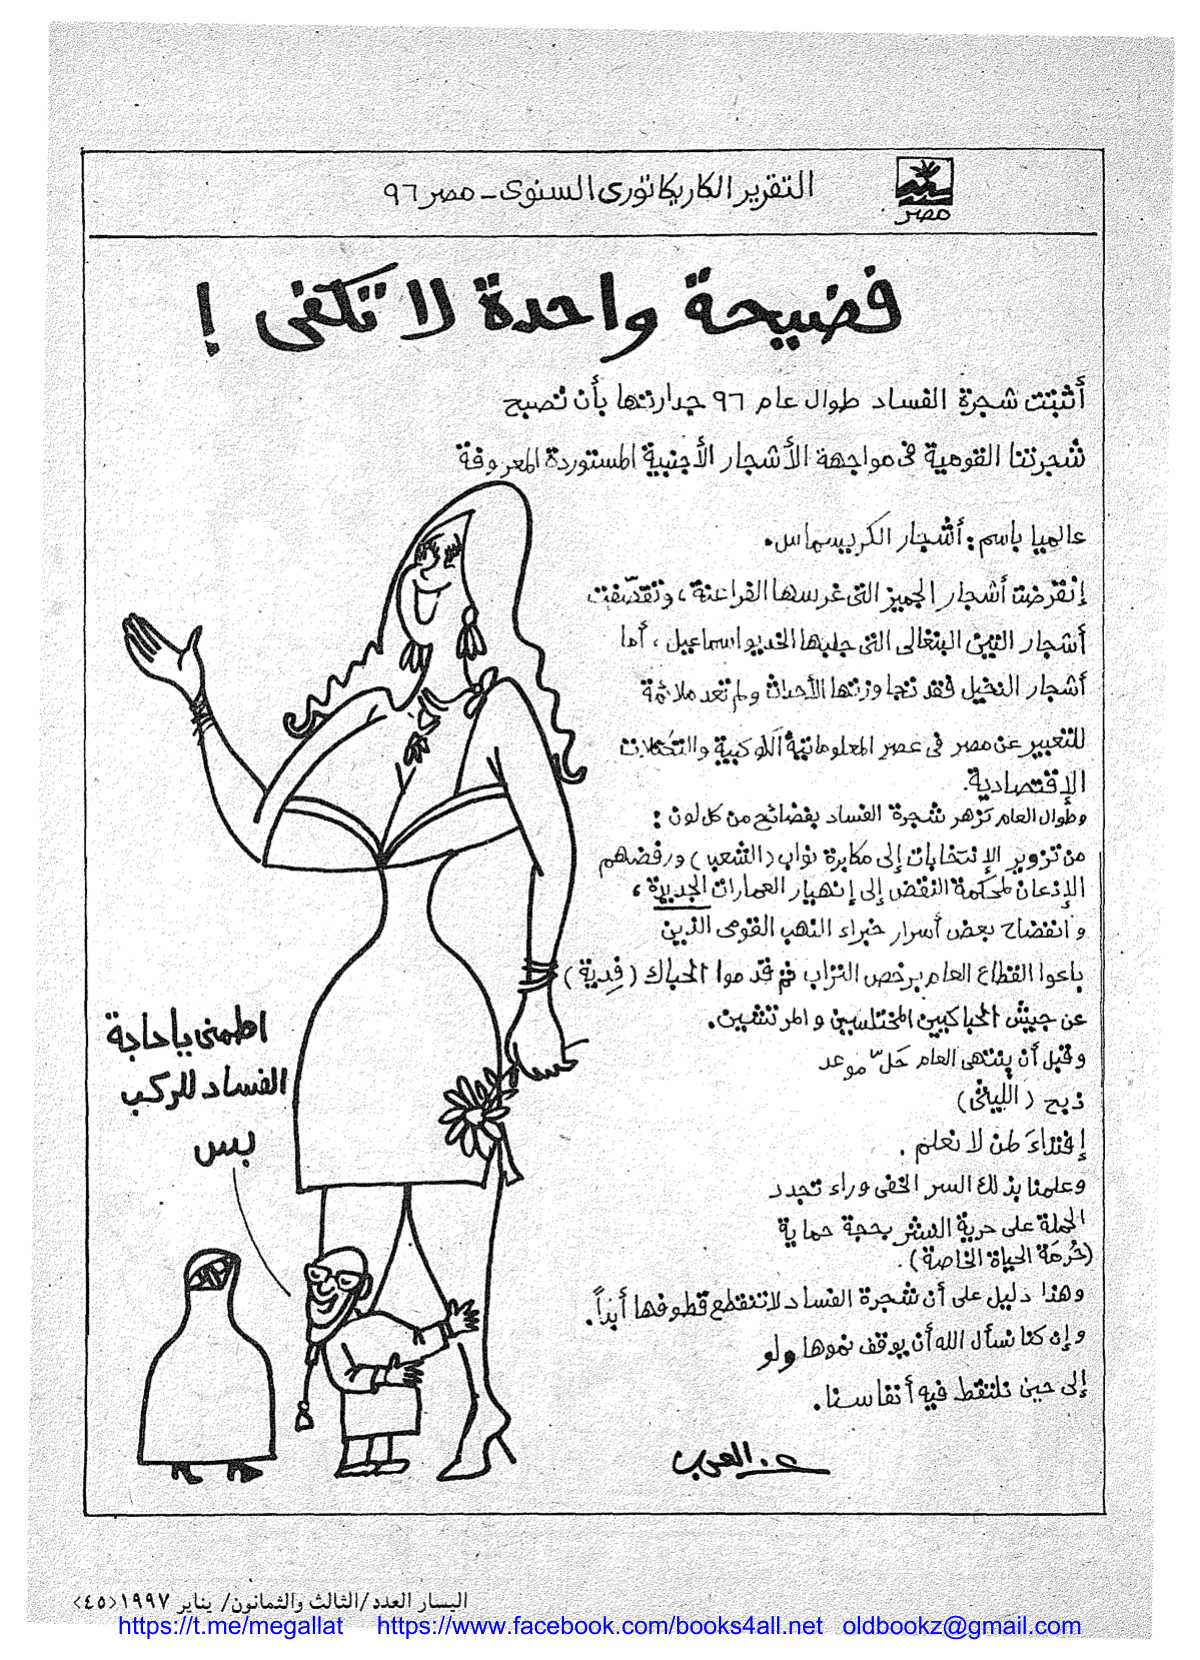 التقرير الكاريكاتورى السنوى - مصر ٩٦
مصر
فضيحة واحدة لا تكفى !
أثبتت شجرة الفساد طوال عام ٩٦ جدارتها بأن تصبح
شجرتنا القومية فى مواجهة الأشجار الأجنبية المستوردة المعروفة
عالميا باسم : أشجار الكريسماس.
إنقرضت أشجار الجميز التى غرسها الفراعنة ، وتقصّفت
أشجار التين البنغالى التى جلبها الخديو اسماعيل ، أما
أشجار النخيل فقد تجاوزتها الأحداث ولم تعد ملائمة
للتعبير عن مصر فى عصر المعلوماتية الكوكبية والتكتلات
الإقتصادية.
وطوال العام تزهر شجرة الفساد بفضائح من كل لون :
من تزوير الإنتخابات إلى مكابرة نواب (الشعب) ورفضهم
الإذعان لمحكمة النقض إلى إنهيار العمارات الجديدة ،
وانفضاح بعض أسرار خبراء النهب القومى الذين
باعوا القطاع العام برخص التراب ثم قدموا الحباك (فِدية)
عن جيش الحباكين المختلسين والمرتشين.
وقبل أن ينتهى العام حَلّ موعد
ذبح (الليثى)
إفتداءَ لمن لا نعلم .
وعلمنا بذلك السر الخفى وراء تجدد
الحملة على حرية النشر بحجة حماية
(حُرمَة الحياة الخاصة).
وهذا دليل على أن شجرة الفساد لا تنقطع قطوفها أبداً.
وإن كنا نسأل الله أن يوقف نموها ولو
إلى حين نلتقط فيه أنفاسنا.
اطمنى يا حاجة
الفساد للركب
بس
عز العرب
اليسار العدد/الثالث والثمانون/ يناير ١٩٩٧<٤٥>
https://t.me/megallat https://www.facebook.com/books4all.net oldbookz@gmail.com